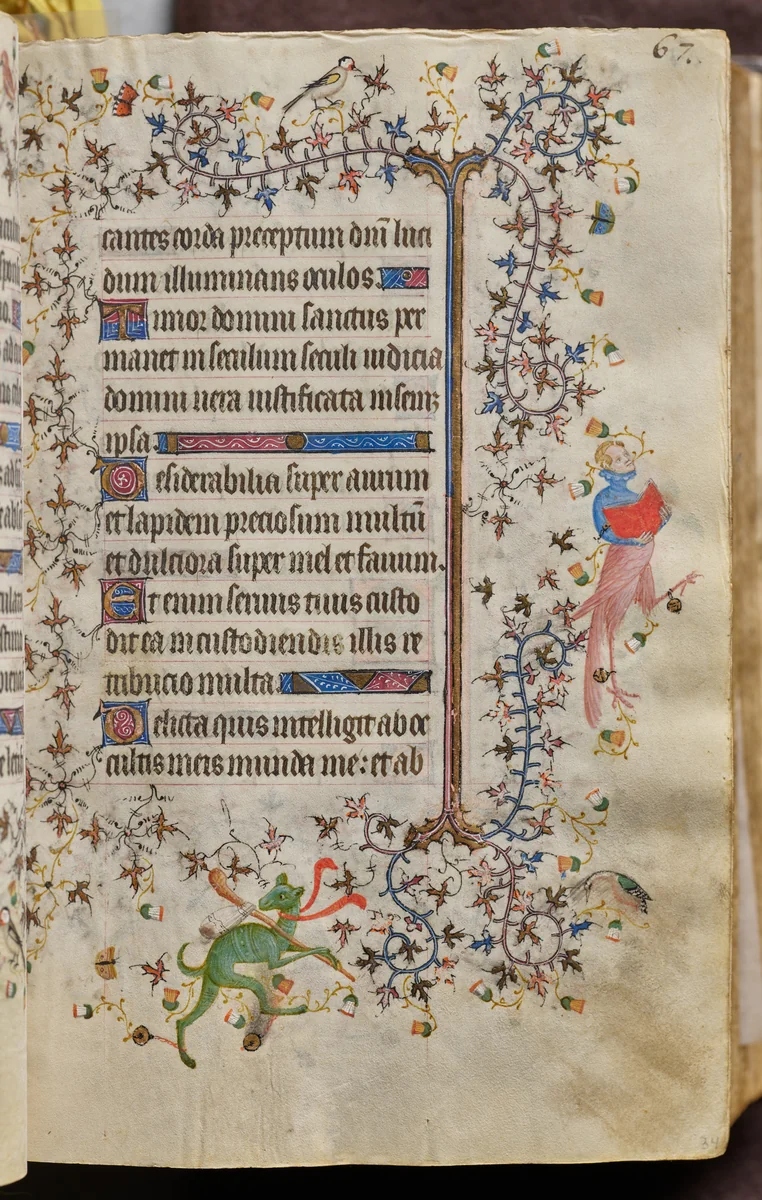 67.
cantes corda preceptum dnı̄ luci
dum illuminans oculos.
Timor domini sanctus per
manet in seculum seculi iudicia
domini uera iustificata in semꝫ
ipsa.
Desiderabilia super aurum
et lapidem preciosum multū
et dulciora super mel et fauum.
Etenim seruus tuus custo
dit ea in custodiendis illis re
tribucio multa.
Delicta quis intelligit ab oc
cultis meis munda me: et ab
34